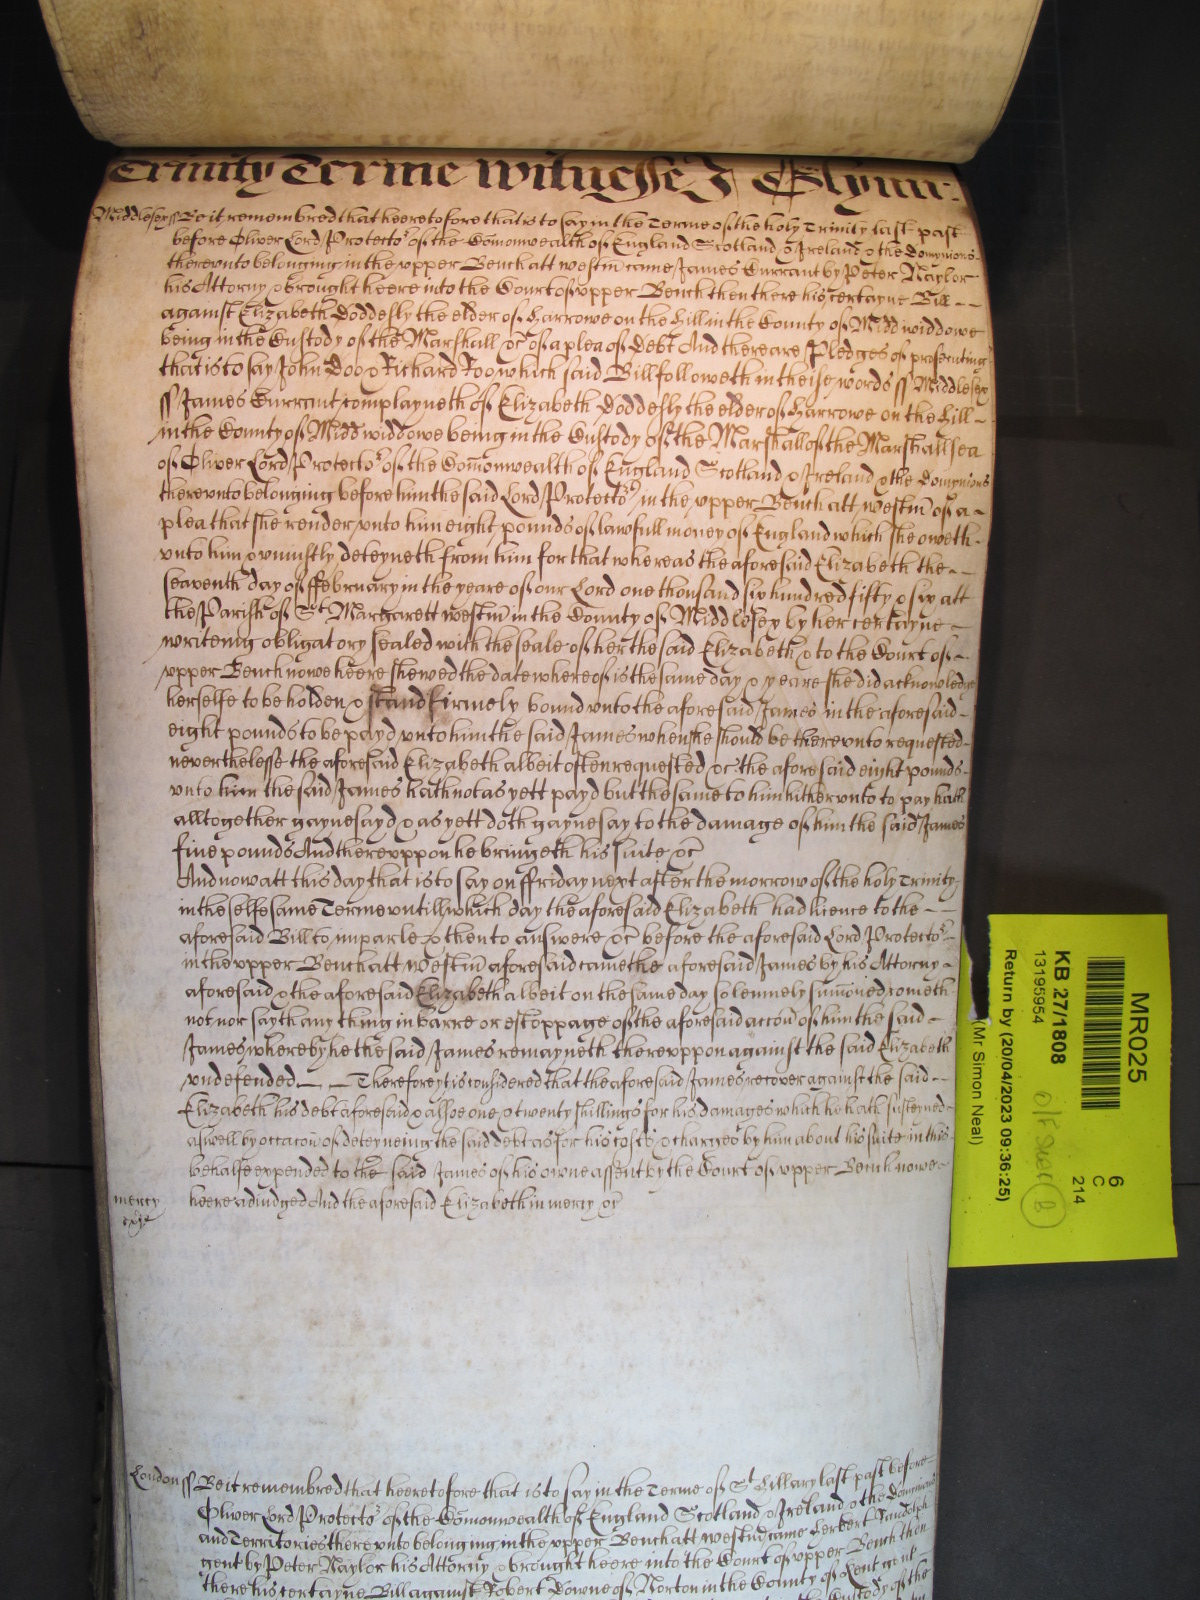 Trinity Terme Witnesse J Glynn:
Middlesex ss Be it remembred that heeretofore that is to say in the Terme of the holy Trinity last past
before Oliver Lord Protector of the Comonwealth of England Scotland & Ireland & the Dominions
therevnto belonging in the vpper Bench att Westm came James Currant by Peter Naylor
his Attorny & brought heere into the Court of vpper Bench then there his certayne Bill
against Elizabeth Doddesly the elder of Harrowe on the Hill in the County of Midd widdowe
being in the Custody of the Marshall &c of a plea of Debt And there are Pledges of prosecuting
that is to say John Doo & Richard Roo which said Bill followeth in theise words ss Middlesex
ss James Currant complayneth of Elizabeth Doddesly the elder of Harrowe on the Hill
in the County of Midd widdowe being in the Custody of the Marshall of the Marshallsea
of Oliver Lord Protector of the Comonwealth of England Scotland & Ireland & the Dominions
therevnto belonging before him the said Lord Protector in the vpper Bench att Westm of a
plea that she render vnto him eight pounds of lawfull money of England which she oweth
vnto him & vniustly deteyneth from him for that whereas the aforesaid Elizabeth the
seaventh day of ffebruary in the yeare of our Lord one thousand six hundred fifty & six att
the Parish of St Margarett Westm in the County of Middlesex by her certayne
writeing obligatory sealed with the seale of her the said Elizabeth & to the Court of
vpper Bench nowe heere shewed the date whereof is the same day & yeare she did acknowledge
herselfe to be holden & stand firmely bound vnto the aforesaid James in the aforesaid
eight pounds to be payd vnto him the said James when she should be therevnto requested
neverthelesse the aforesaid Elizabeth albeit often requested &c the aforesaid eight pounds
vnto him the said James hath not as yett payd but the same to him hithervnto to pay hath
alltogether gaynesayd & as yett doth gaynesay to the damage of him the said James
five pounds And therevppon he bringeth his suite &c
And now att this day that is to say on ffriday next after the morrow of the holy Trinity
in the selfe same Terme vntill which day the aforesaid Elizabeth had licence to the
aforesaid Bill to imparle & then to answere &c before the aforesaid Lord Protector
in the vpper Bench att Westm aforesaid came the aforesaid James by his Attorny
aforesaid & the aforesaid Elizabeth albeit on the same day solemnely sumoned cometh
not nor sayth any thing in barre or estoppage of the aforesaid accon of him the said
James whereby he the said James remayneth therevppon against the said Elizabeth
vndefended Therefore yt is considered that the aforesaid James recover against the said
Elizabeth his debt aforesaid & alsoe one & twenty shillings for his damages which he hath susteyned
aswell by occacon of deteyneing the said debt as for his costs & charges by him about his suite in this
behalfe expended to the said James of his owne assent by the Court of vpper Bench nowe
mercy heere adiudged And the aforesaid Elizabeth in mercy &c
London ss Be it remembred that heeretofore that is to say in the Terme of St Hillary last past before
Oliver Lord Protector of the Comonwealth of England Scotland & Ireland & the Dominions
and Territories therevnto belonging in the vpper Bench att Westm came Herbert Randolph
gent by Peter Naylor his Attorny & brought heere into the Court of vpper Bench then
there his certayne Bill against Robert Downe of Norton in the County of Kent gent
Custody of the
MR025
6
C
214
KB 27/1808
13195954
Return by (20/04/2023 09:36:25)
(Mr Simon Neal)